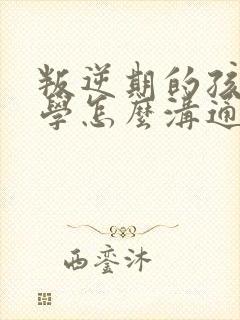 叛逆期的孩
學怎麼溝通
西鑾沐